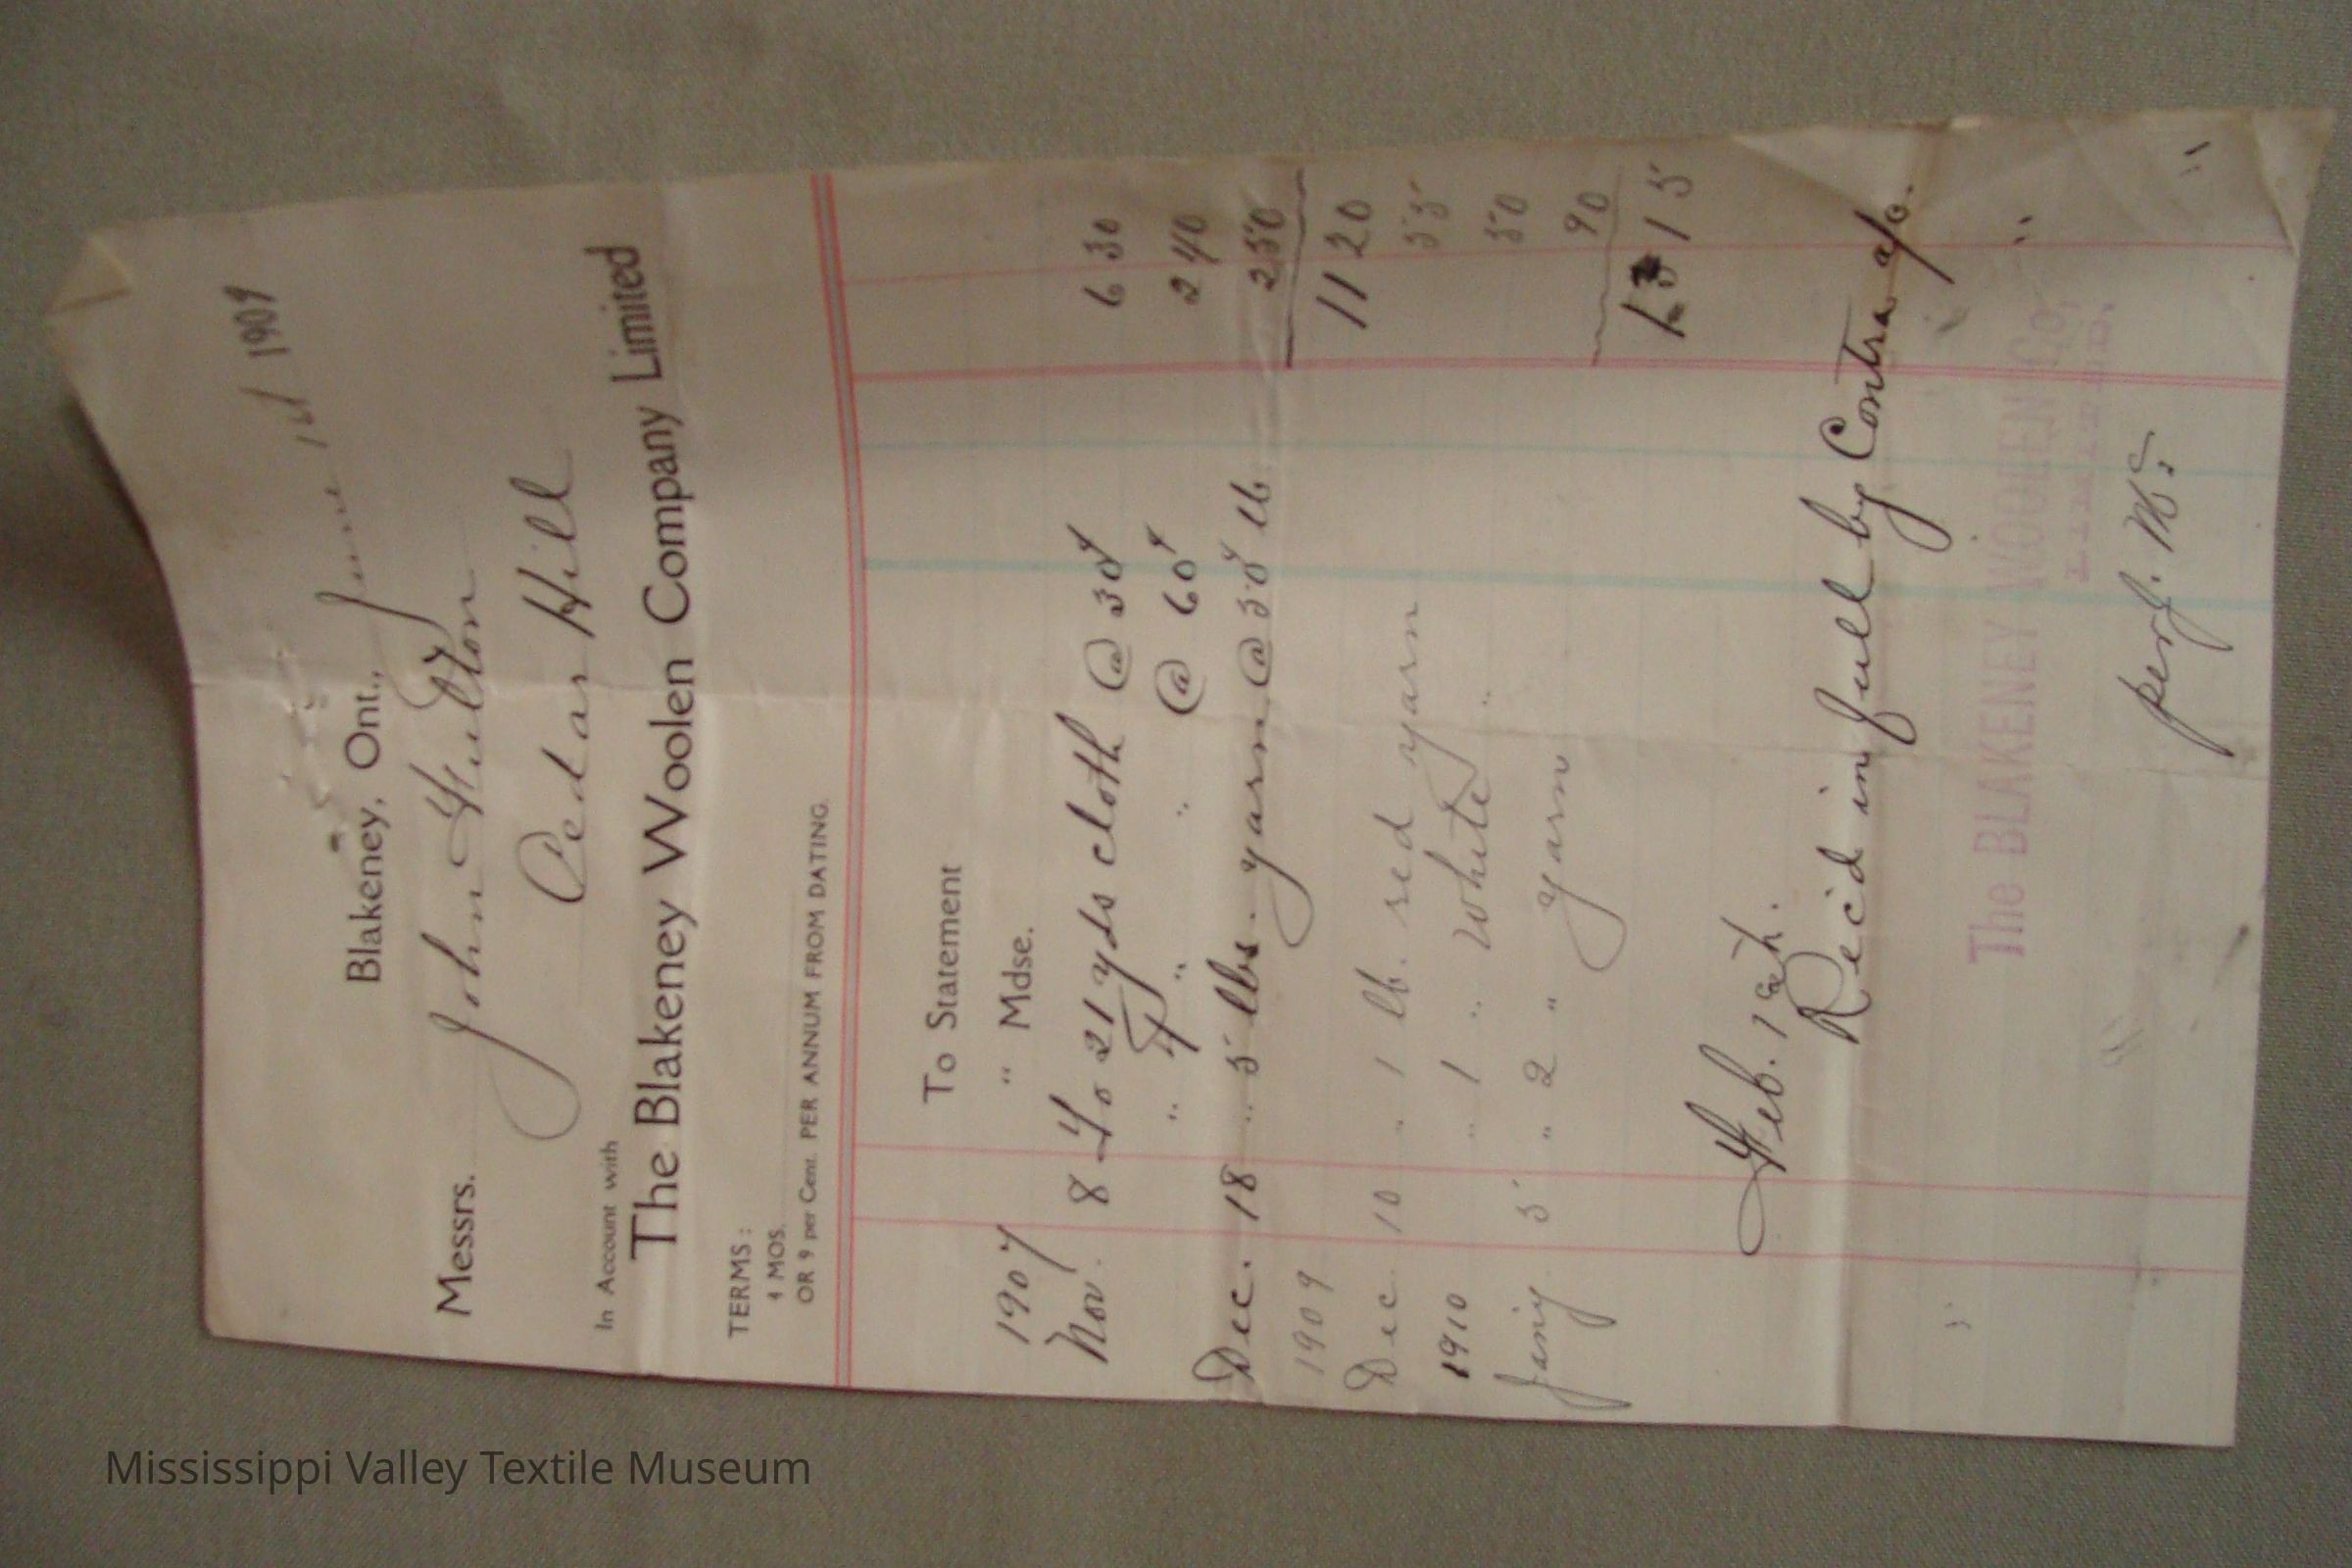 Blakeney, Ont., June 1st 1909
Messrs. John Fulton
Cedar Hill
In Account with
The Blakeney Woolen Company Limited
TERMS :
4 MOS.
OR 9 per Cent. PER ANNUM FROM DATING.
To Statement
1907 " Mdse.
Nov. 8 To 21 yds cloth @ 30¢ 6 30
" 4 " " @ 60¢ 2 40
Dec. 18 " 5 lbs. yarn @ 50¢ lb 2 50
1909 11 20
Dec 10 " 1 lb. red yarn 55
1910 " 1 " white " 50
Jany 5 " 2 " yarn 90
13 15
Feb. 19th.
Rec'd in full by Contra a/c.
The BLAKENEY WOOLEN Co.,
LIMITED.
per J. M.
Mississippi Valley Textile Museum